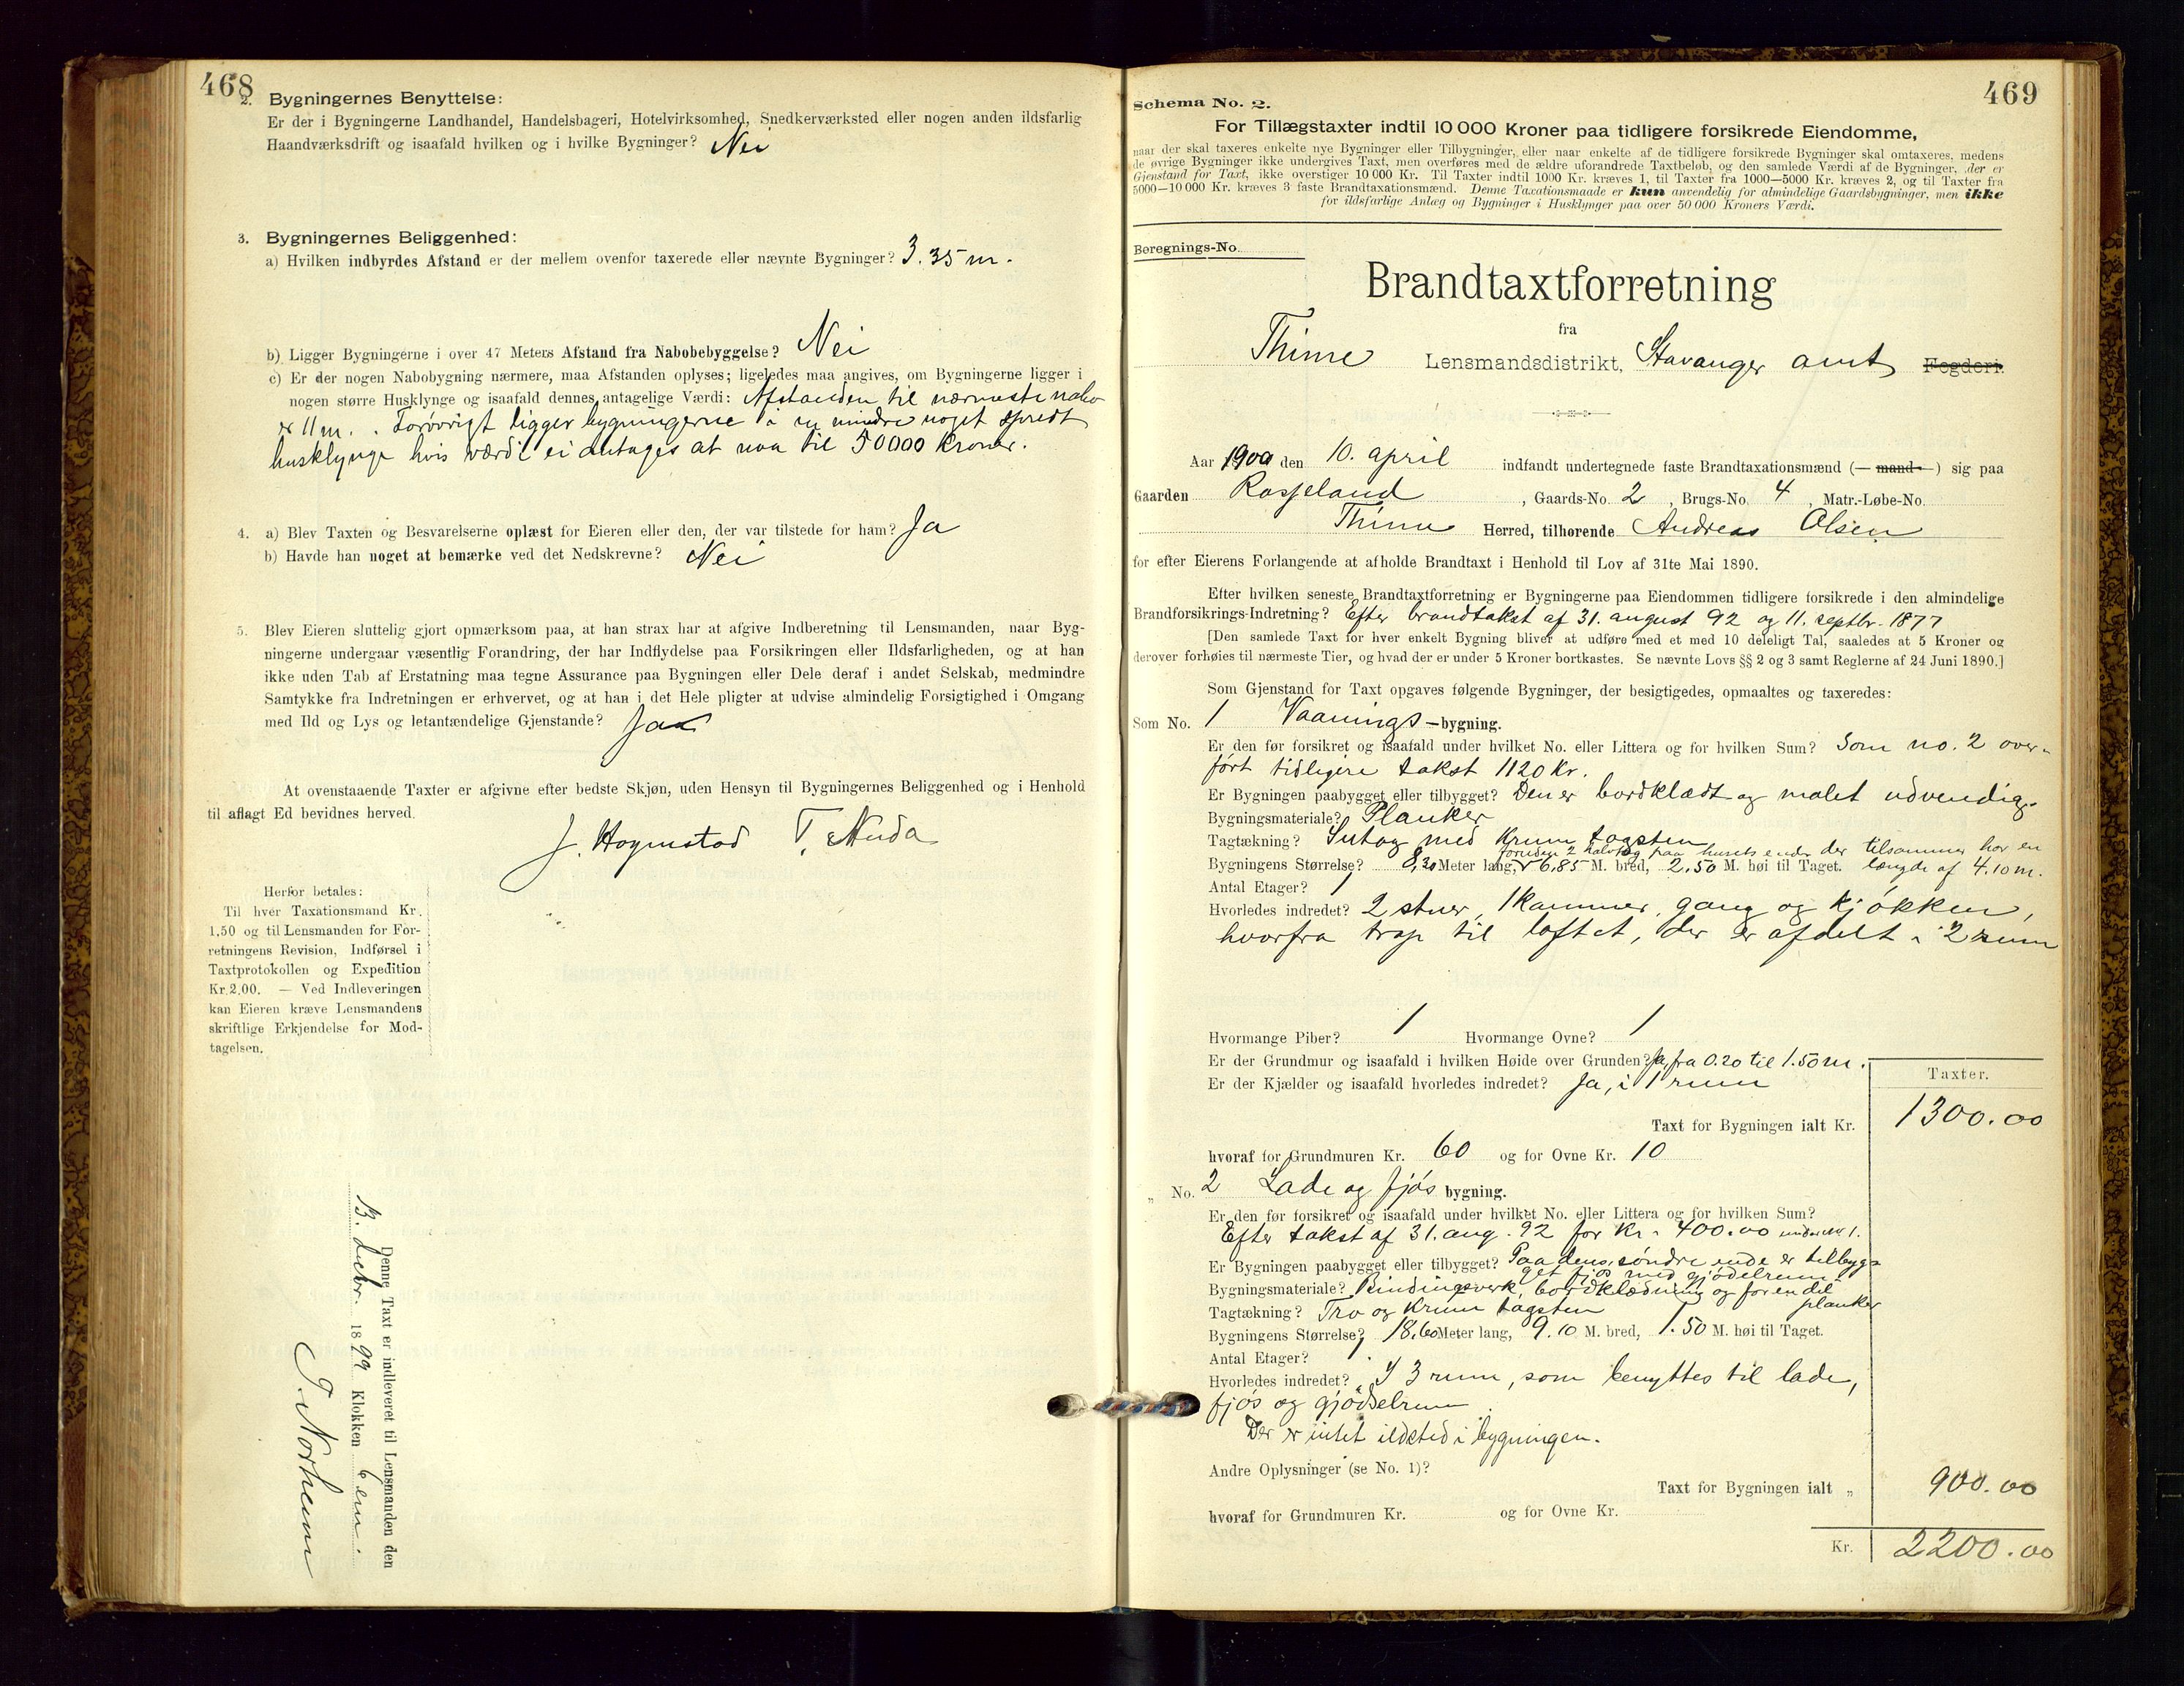 468
2. Bygningernes Benyttelse:
Er der i Bygningerne Landhandel, Handelsbageri, Hotelvirksomhed, Snedkerværksted eller nogen anden ildsfarlig
Haandværksdrift og isaafald hvilken og i hvilke Bygninger? Nei
3. Bygningernes Beliggenhed:
a) Hvilken indbyrdes Afstand er der mellem ovenfor taxerede eller nævnte Bygninger? 3.35 m.
b) Ligger Bygningerne i over 47 Meters Afstand fra Nabobebyggelse? Nei
c) Er der nogen Nabobygning nærmere, maa Afstanden oplyses; ligeledes maa angives, om Bygningerne ligger i
nogen større Husklynge og isaafald dennes antagelige Værdi: Afstanden til nærmeste nabo
er 11 m. Forøvrigt ligger bygningerne i en mindre noget spredt
husklynge hvis værdi ei antages at naa til 50000 Kroner.
4. a) Blev Taxten og Besvarelserne oplæst for Eieren eller den, der var tilstede for ham? Ja
b) Havde han noget at bemærke ved det Nedskrevne? Nei
5. Blev Eieren sluttelig gjort opmærksom paa, at han strax har at afgive Indberetning til Lensmanden, naar Byg-
ningerne undergaar væsentlig Forandring, der har Indflydelse paa Forsikringen eller Ildsfarligheden, og at han
ikke uden Tab af Erstatning maa tegne Assurance paa Bygningen eller Dele deraf i andet Selskab, medmindre
Samtykke fra Indretningen er erhvervet, og at han i det Hele pligter at udvise almindelig Forsigtighed i Omgang
med Ild og Lys og letantændelige Gjenstande? Ja
At ovenstaaende Taxter er afgivne efter bedste Skjøn, uden Hensyn til Bygningernes Beliggenhed og i Henhold
til aflagt Ed bevidnes herved.
J. Hognestad T.
Herfor betales:
Til hver Taxationsmand Kr.
1,50 og til Lensmanden for For-
retningens Revision, Indførsel i
Taxtprotokollen og Expedition
Kr. 2,00. — Ved Indleveringen
kan Eieren kræve Lensmandens
skriftlige Erkjendelse for Mod-
tagelsen.
Denne Taxt er indleveret til Lensmanden den
13. 1899 Klokken 6 em.
Norheim
469
Schema No. 2.
For Tillægstaxter indtil 10 000 Kroner paa tidligere forsikrede Eiendomme,
naar der skal taxeres enkelte nye Bygninger eller Tilbygninger, eller naar enkelte af de tidligere forsikrede Bygninger skal omtaxeres, medens
de øvrige Bygninger ikke undergives Taxt, men overføres med de ældre uforandrede Taxtbeløb, og den samlede Værdi af de Bygninger, der er
Gjenstand for Taxt, ikke overstiger 10 000 Kr. Til Taxter indtil 1000 Kr. kræves 1, til Taxter fra 1000—5000 Kr. kræves 2, og til Taxter fra
5000—10 000 Kr. kræves 3 faste Brandtaxationsmænd. Denne Taxationsmaade er kun anvendelig for almindelige Gaardsbygninger, men ikke
for ildsfarlige Anlæg og Bygninger i Husklynger paa over 50 000 Kroners Værdi.
Beregnings-No.
Brandtaxtforretning
fra
Thime Lensmandsdistrikt, Stavanger amt Fogderi.
Aar 1900 den 10. april indfandt undertegnede faste Brandtaxationsmænd (—mand—) sig paa
Gaarden Rosseland, Gaards-No. 2, Brugs-No. 4, Matr.-Løbe-No.
Thime Herred, tilhørende Andreas Olsen
for efter Eierens Forlangende at afholde Brandtaxt i Henhold til Lov af 31te Mai 1890.
Efter hvilken seneste Brandtaxtforretning er Bygningerne paa Eiendommen tidligere forsikrede i den almindelige
Brandforsikrings-Indretning? Efter brandtakst af 31. august 92 og 11. septbr. 1877
[Den samlede Taxt for hver enkelt Bygning bliver at udføre med et med 10 deleligt Tal, saaledes at 5 Kroner og
derover forhøies til nærmeste Tier, og hvad der er under 5 Kroner bortkastes. Se nævnte Lovs §§ 2 og 3 samt Reglerne af 24 Juni 1890.]
Som Gjenstand for Taxt opgaves følgende Bygninger, der besigtigedes, opmaaltes og taxeredes:
Som No. 1 Vaanings-bygning.
Er den før forsikret og isaafald under hvilket No. eller Littera og for hvilken Sum? Som no. 2 over-
ført tidligere takst 1120 kr.
Er Bygningen paabygget eller tilbygget? Den er bordklædt og malet udvendig.
Bygningsmateriale? Planker
Tagtækning? Sutag med Krum tagsten
foruden 2 halvtag paa husets ende der tilsammen har en
Bygningens Størrelse? 8,30 Meter lang, 6,85 M. bred, 2,50 M. høi til Taget. længde af 4.10 m.
Antal Etager? 1
Hvorledes indredet? 2 stuer, 1 Kammer, gang og kjøkken,
hvorfra trap til loftet, der er afdelt i 2 rum
Hvormange Piber? 1 Hvormange Ovne? 1
Er der Grundmur og isaafald i hvilken Høide over Grunden? Ja, fra 0.20 til 1.50 m.
Er der Kjælder og isaafald hvorledes indredet? Ja, i 1 rum
Taxter.
Taxt for Bygningen ialt Kr. 1300.00
hvoraf for Grundmuren Kr. 60 og for Ovne Kr. 10
„ No. 2 Lade og fjøs bygning.
Er den før forsikret og isaafald under hvilket No. eller Littera og for hvilken Sum?
Efter takst af 31. aug. 92 for Kr. 400.00 under No 1.
Er Bygningen paabygget eller tilbygget? Paa dens søndre ende er tilbyg-
get fjøs med gjødelrum
Bygningsmateriale? Bindingsverk, bordklædning og for en del planker
Tagtækning? Tro og Krum tagsten
Bygningens Størrelse? 18,60 Meter lang, 9.10 M. bred, 1.50 M. høi til Taget.
Antal Etager? 1
Hvorledes indredet? I 3 rum, som benyttes til lade,
fjøs og gjødselrum
Der er intet ildsted i bygningen.
Andre Oplysninger (se No. 1)?
Taxt for Bygningen ialt „ 900.00
hvoraf for Grundmuren Kr. og for Ovne Kr.
Kr. 2200.00